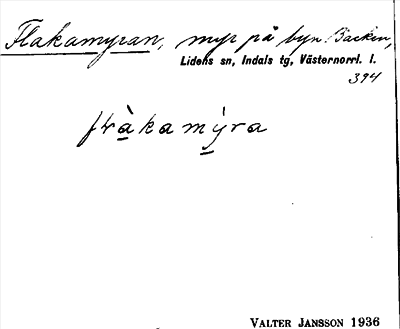 Flakamyran, myr på byn Backen,
Lidens sn, Indals tg, Västernorrl. l.
394
flràkamýra
VALTER JANSSON 1936